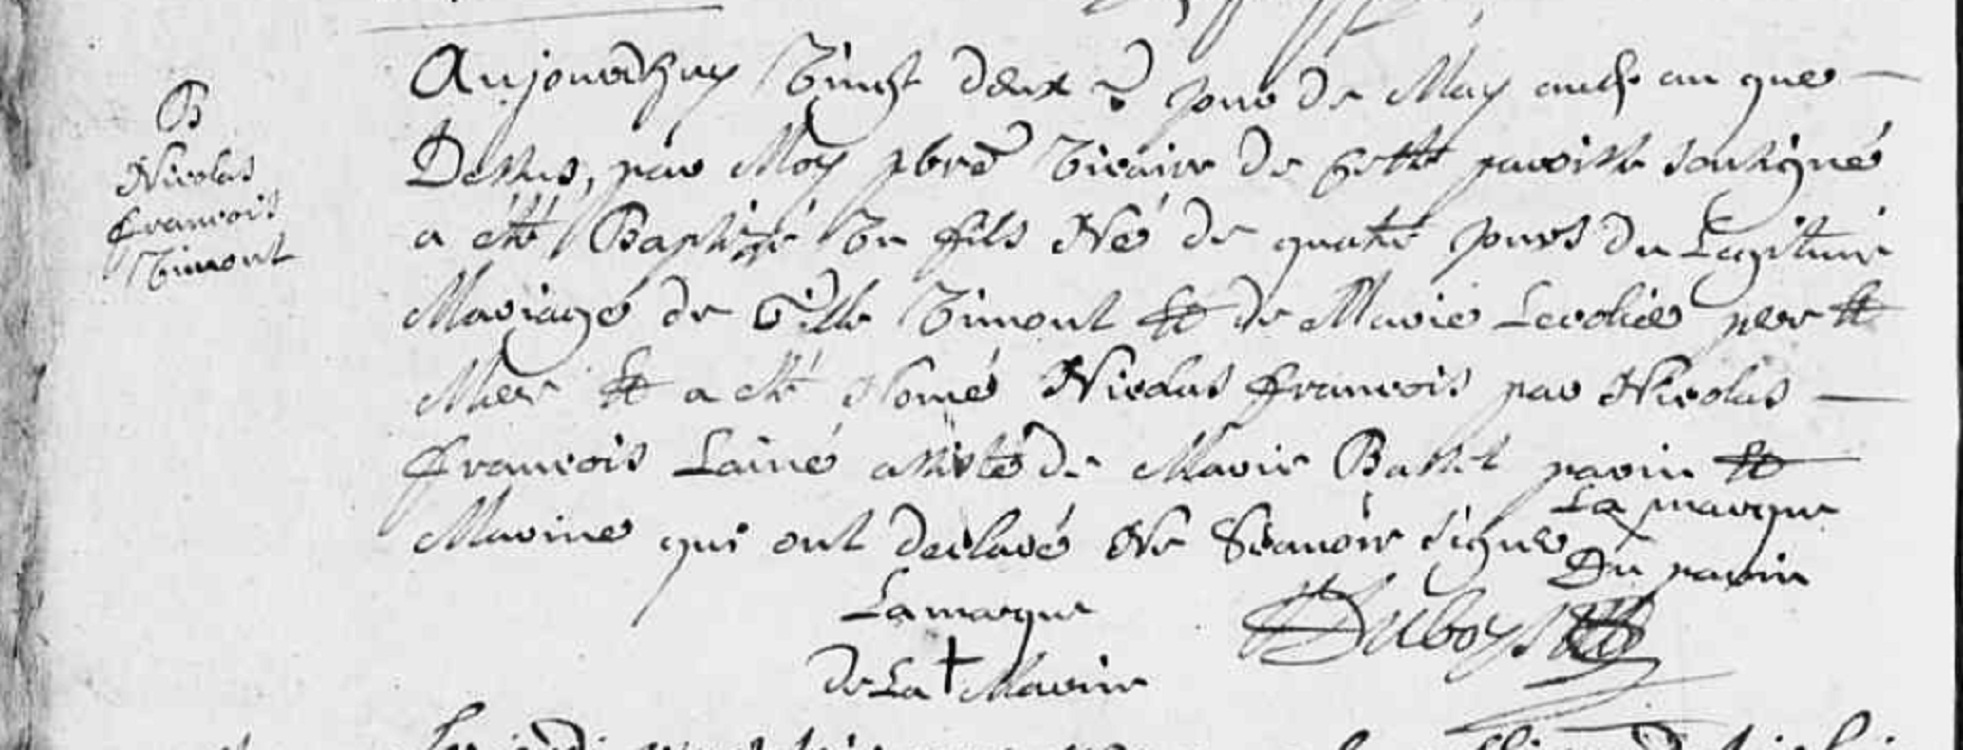 B
Nicolas
francois
Vimont
Aujourdhuy Vingt deux e jour de May audt an que
Dessus, par Moy pbre Vicaire de Cette paroisse soussigné
a été Baptizé Un fils Né de quatre jours du Legitime
Mariage de Vimont Et de Marie pere Et
Mere Et a été Nomé Nicolas francois par Nicolas
francois Lainé assisté de Marie Basset parin Et
Marine qui ont declaré Ne Scavoir signer
La marque
Du parin
La marque
de La + Marine
Duboys